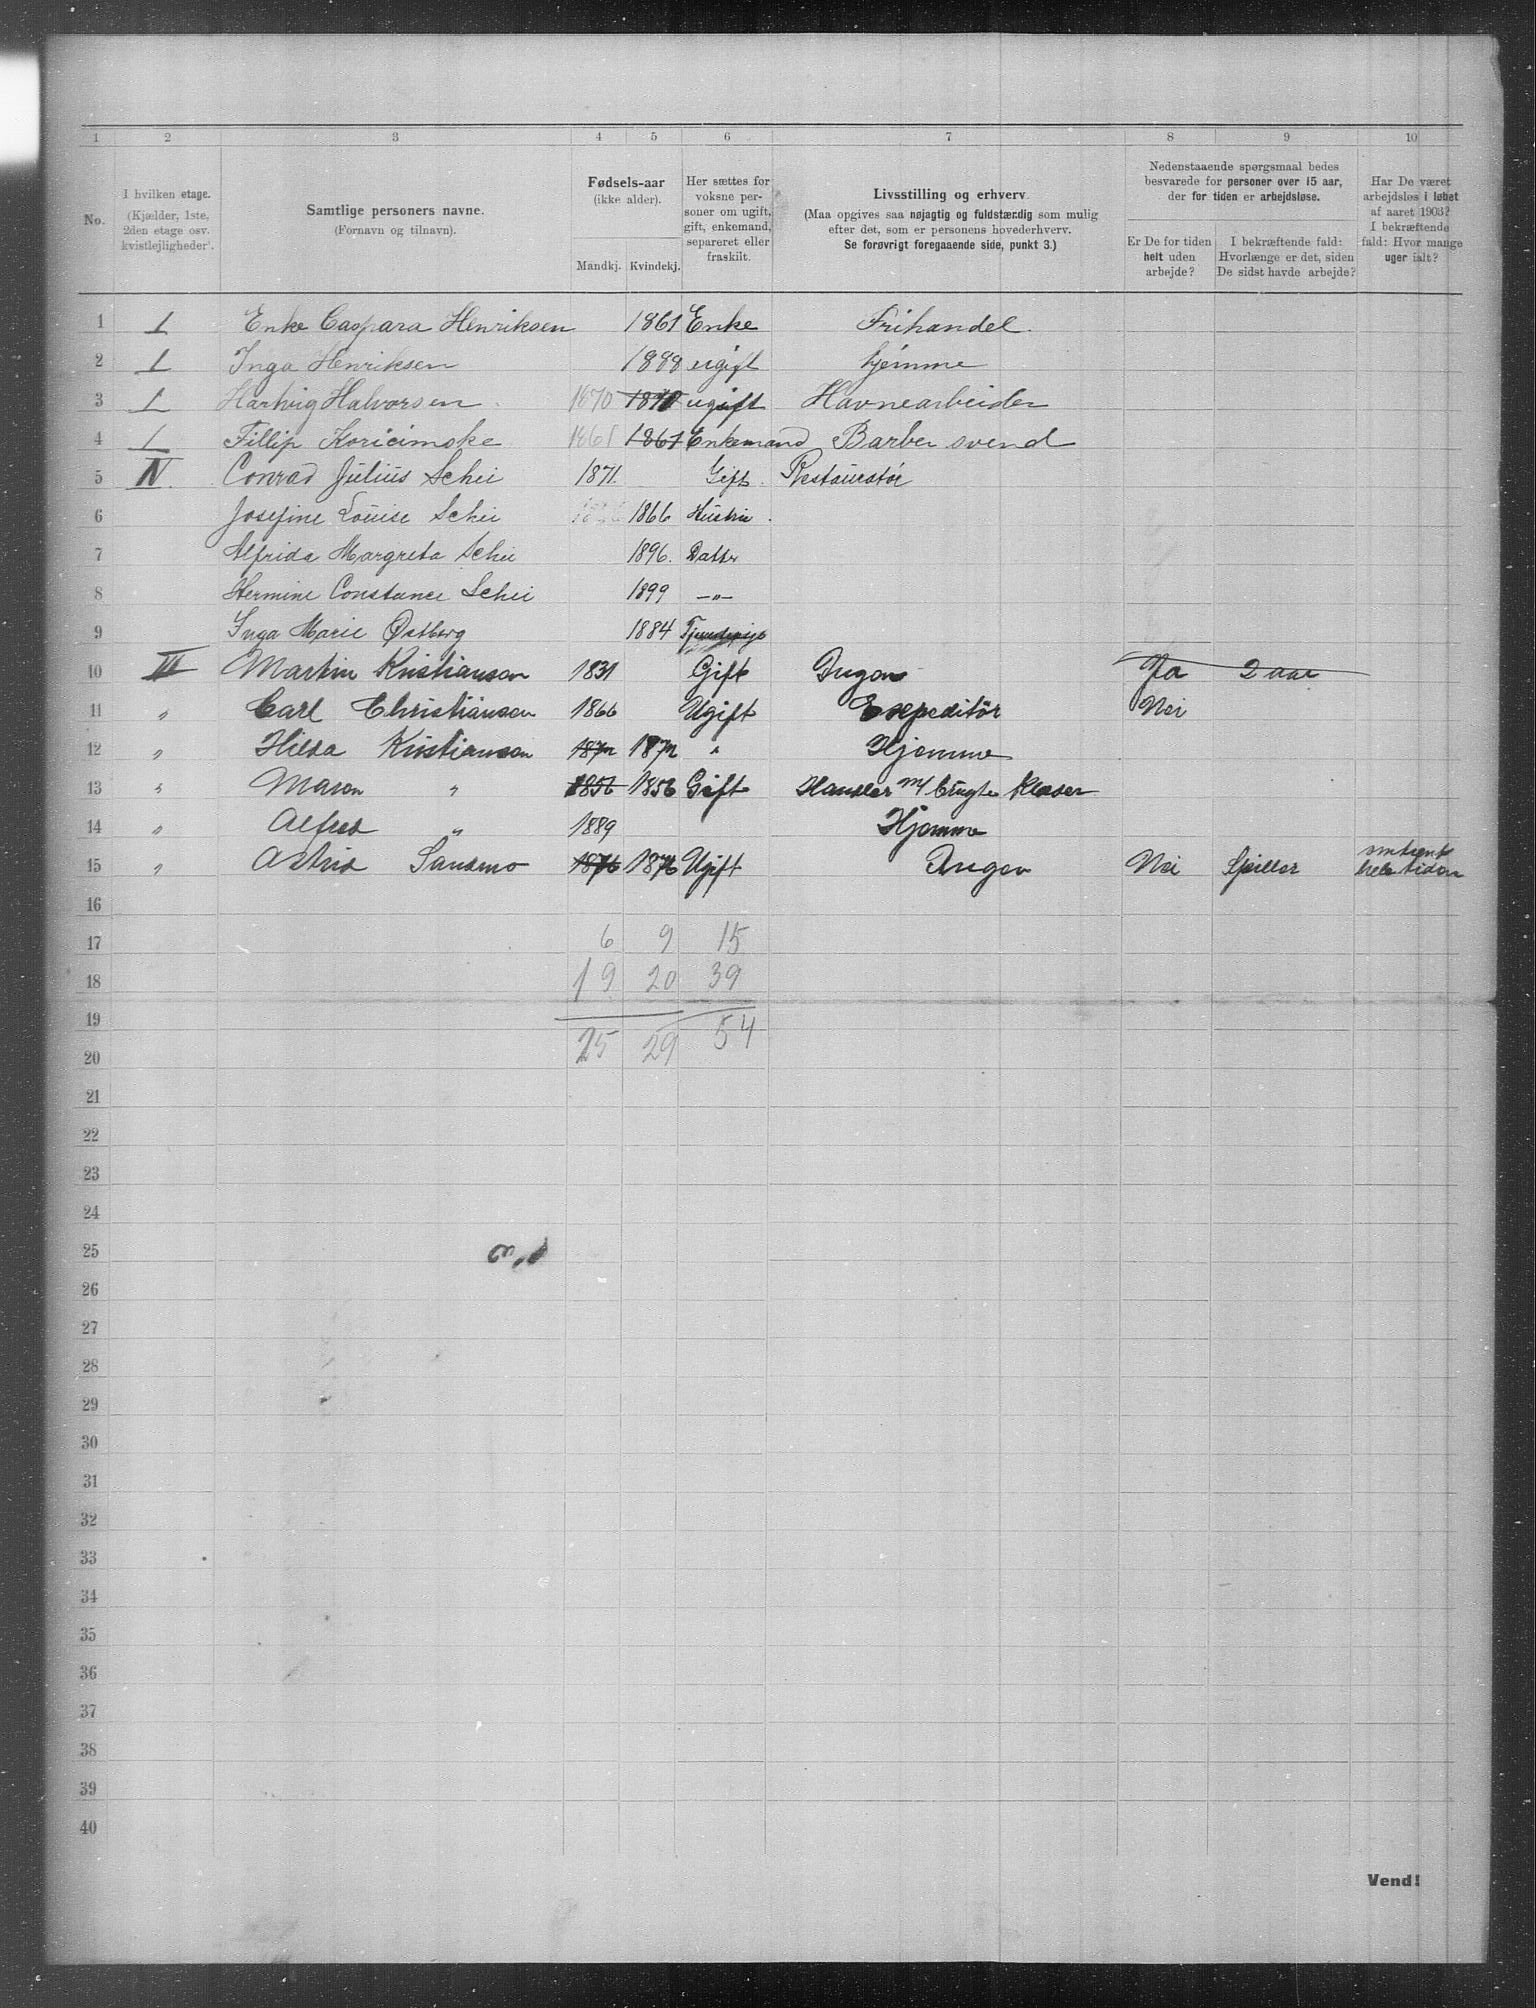 1 2 3 4 5 6 7 8 9 10
No.
I hvilken etage.
(Kjælder, 1ste,
2den etage osv.
kvistlejligheder).
Samtlige personers navne.
(Fornavn og tilnavn).
Fødsels-aar
(ikke alder).
Mandkj. Kvindekj.
Her sættes for
voksne per-
soner om ugift,
gift, enkemand,
separeret eller
fraskilt.
Livsstilling og erhverv
(Maa opgives saa nøjagtig og fuldstændig som mulig
efter det, som er personens hovederhverv.
Se forøvrigt foregaaende side, punkt 3.)
Nedenstaaende spørgsmaal bedes
besvarede for personer over 15 aar,
der for tiden er arbejdsløse.
Er De for tiden
helt uden
arbejde?
I bekræftende fald:
Hvorlænge er det, siden
De sidst havde arbejde?
Har De været
arbejdsløs i løbet
af aaret 1903?
I bekræftende
fald: Hvor mange
uger ialt?
1 1 Enke Caspara Henriksen 1861 Enke Frihandel
2 1 Inga Henriksen 1888 ugift hjemme
3 1 Hartvig Halvorsen 1870 1870 ugift Havnearbeider
4 1 Fillip 1861 1861 Enkemand Barber svend
5 IV. Conrad Julius Schei 1871. Gift. Restauratør
6 Josefine Louise Schei 1866 Hustru
7 Alfrida Margreta Schei 1896. Datter
8 Hermine Constance Schei 1899 —„—
9 Inga Marie Østberg 1884 Tjenestepige
10 III Martin Kristiansen 1831 Gift Ingen Ja 2 aar
11 „ Carl Christiansen 1866 Ugift Expeditør Nei
12 „ Hilda Kristiansen 1872 1872 „ Hjemme
13 „ Maren „ 1856 1856 Gift Handler m/ brugte Klæder
14 „ Alfred „ 1889 Hjemme
15 „ Astrid Sandmo 1876 1876 Ugift Ingen Nei Spiller omtrent
hele tiden
16
17 6 9 15
18 19 20 39
19
20 25 29 54
21
22
23
24
25
26
27
28
29
30
31
32
33
34
35
36
37
38
39
40
Vend!